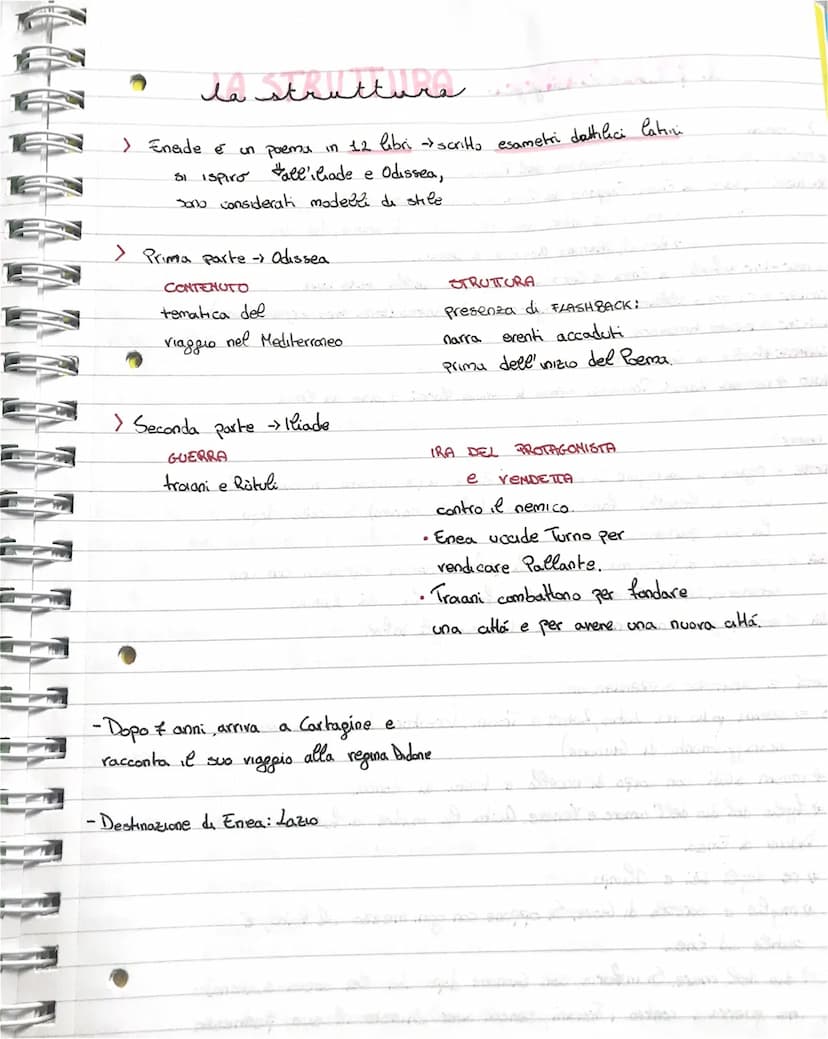 LA STRUTTURA
la struttura
> Eneide é un poema in 12 libri → scritto esametri dattilici latini
si ispiro dall'iliade e Odissea,
sono considerati modelli di stile
> Prima parte → Odissea
CONTENUTO
tematica del
viaggio nel Mediterraneo
STRUTTURA
presenza di FLASHBACK:
narra eventi accaduti
prima dell'inizio del Poema.
> Seconda parte → Iliade
GUERRA
troiani e Rùtuli
IRA DEL PROTAGONISTA
e VENDETTA
contro il nemico.
• Enea uccide Turno per
vendicare Pallante.
• Troiani combattono per fondare
una cittá e per avere una nuova cittá.
- Dopo 7 anni, arriva a Cartagine e
racconta il suo viaggio alla regina Didone
- Destinazione di Enea: Lazio